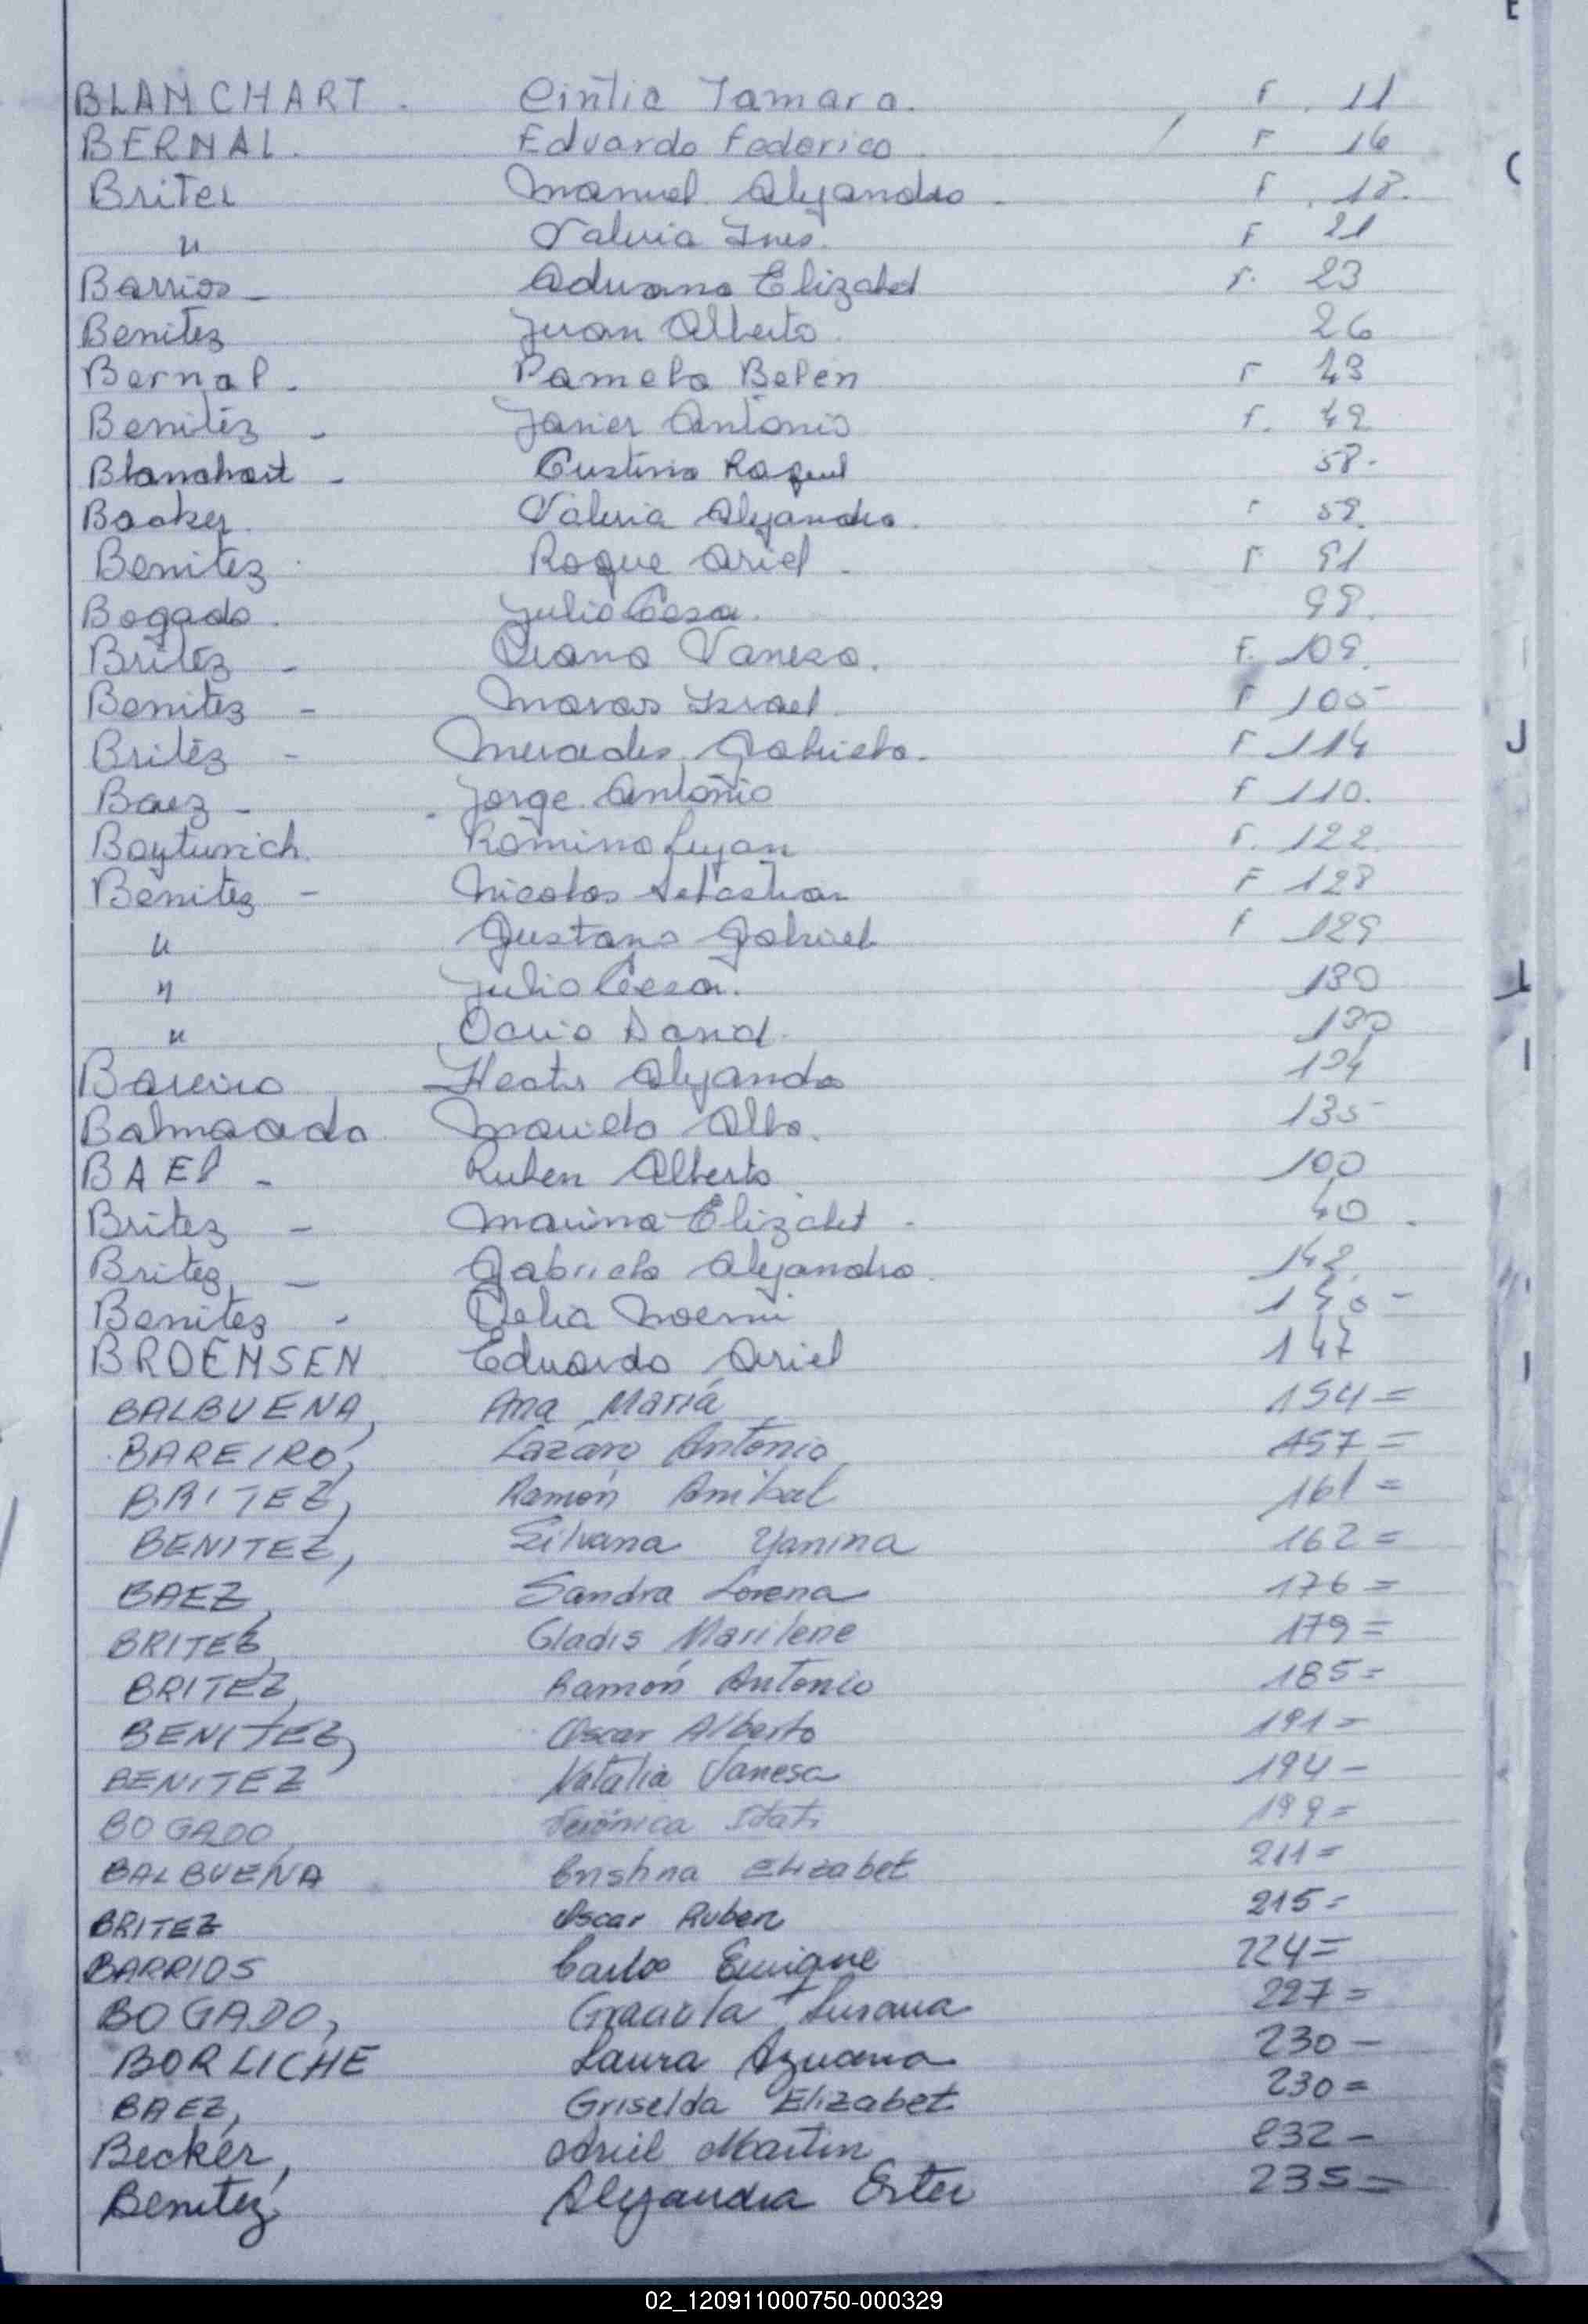 BLANCHART. Cintia Tamara. F. 11
BERNAL. Eduardo Federico. F 16
Britez Manuel Alejandro - F. 18.
" Valeria Ines. F 21
Barrios - Adriana Elizabet F. 23
Benitez Juan Alberto. 26
Bernal. Pamela Belen F 43
Benitez - Javier Antonio F. 49
Blanchart - Cristina Raquel 58.
Booker. Valeria Alejandra. F 59.
Benitez Roque Ariel. F 91
Bogado. Julio Cesar. 98.
Britez - Diana Vanesa. F. 109.
Benitez - Marcos Israel. F 105
Britez - Mercedes Gabriela. F 114
Baez - Jorge Antonio F 110.
Boyturich. Romina Lujan F. 122.
Benitez - Nicolas Sebastian F 128
" Gustavo Gabriel F 129
" Julio Cesar. 130
" Dario David. 130
Bareiro Hector Alejandro 134
Balmaceda Mariela Alba. 135
BAEZ - Ruben Alberto 100
Britez - Marina Elizabet - 40.
Britez - Gabriela Alejandra. 142.
Benitez - Delia Noemi
BROEMSEN Eduardo Ariel 147
BALBUENA, Ana María 154=
BAREIRO, Lazaro Antonio 157=
BRITEZ, Ramón Anibal 161=
BENITEZ, Silvana Yanina 162=
BAEZ, Sandra Lorena 176=
BRITEZ, Gladis Marilene 179=
BRITEZ, Ramón Antonio 185=
BENITEZ, Oscar Alberto 191=
BENITEZ Natalia Vanesa 194-
BOGADO, Verónica Itati 199=
BALBUENA Cristina Elizabet 211=
BRITEZ Oscar Ruben 215=
BARRIOS Carlos Enrique 224=
BOGADO, Graciela Susana 227=
BORLICHE Laura Azucena 230-
BAEZ, Griselda Elizabet 230=
Becker, Ariel Martin 232-
Benitez, Alejandra Ester 235=
E
C
J
L
02_120911000750-000329